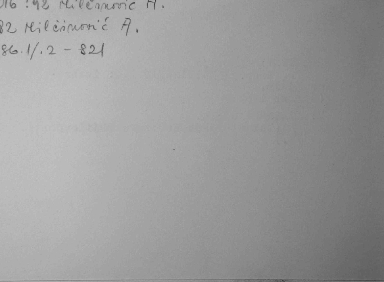 016 : 92 Milćinović A.
82 Milćinović A.
86.1/.2 - 821